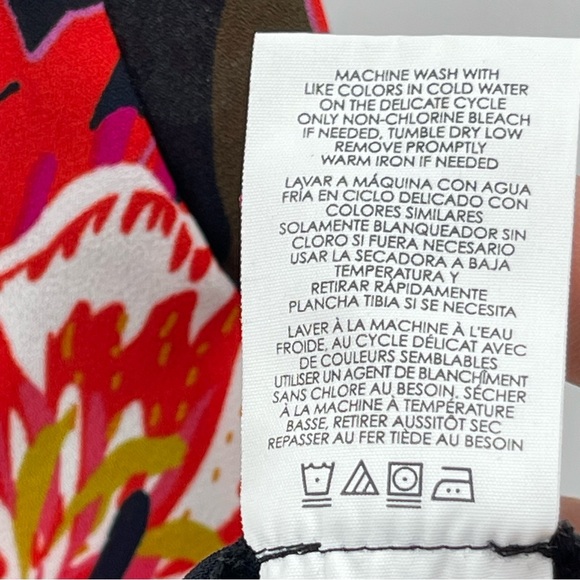 MACHINE WASH WITH
LIKE COLORS IN COLD WATER
ON THE DELICATE CYCLE
ONLY NON-CHLORINE BLEACH
IF NEEDED, TUMBLE DRY LOW
REMOVE PROMPTLY
WARM IRON IF NEEDED
LAVAR A MÁQUINA CON AGUA
FRÍA EN CICLO DELICADO CON
COLORES SIMILARES
SOLAMENTE BLANQUEADOR SIN
CLORO SI FUERA NECESARIO
USAR LA SECADORA A BAJA
TEMPERATURA Y
RETIRAR RÁPIDAMENTE
PLANCHA TIBIA SI SE NECESITA
LAVER À LA MACHINE À L'EAU
FROIDE, AU CYCLE DÉLICAT AVEC
DE COULEURS SEMBLABLES
UTILISER UN AGENT DE BLANCHÎMENT
SANS CHLORE AU BESOIN. SÉCHER
À LA MACHINE À TEMPÉRATURE
BASSE, RETIRER AUSSITÔT SEC
REPASSER AU FER TIÈDE AU BESOIN